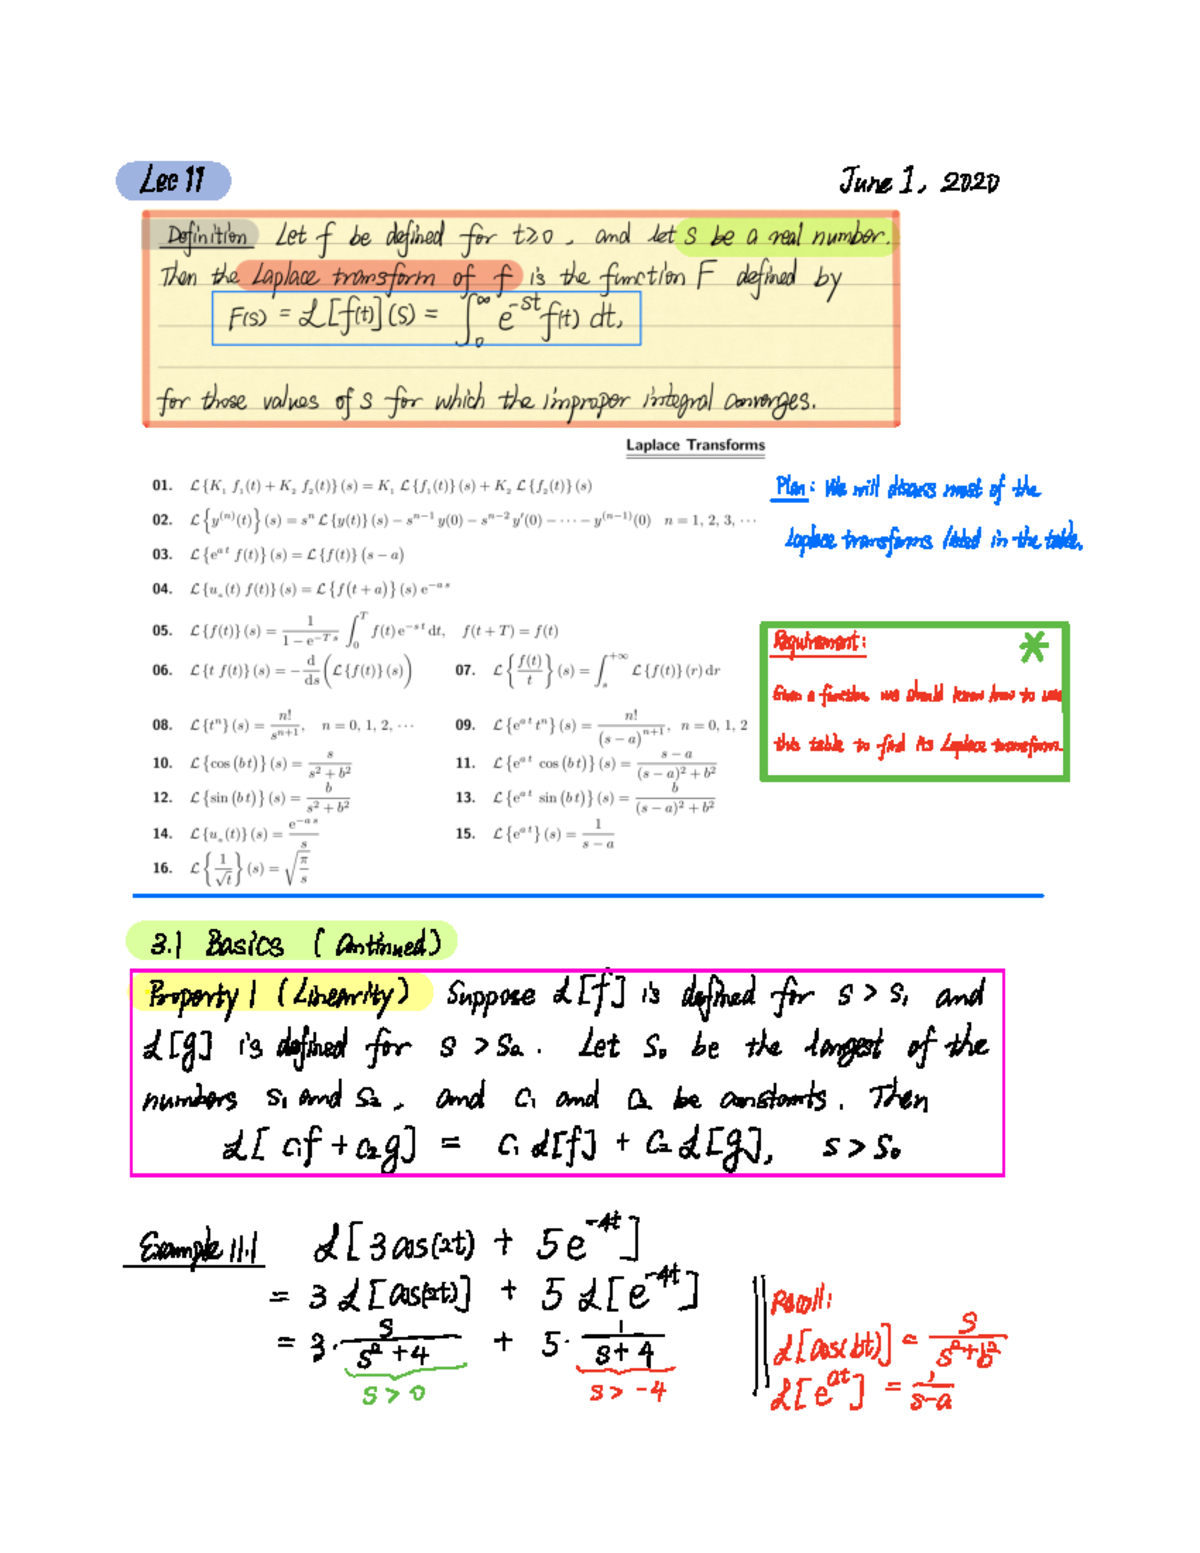 Lec 11
June 1, 2020
Definition Let f be defined for t≥0, and let s be a real number.
Then the Laplace transform of f is the function F defined by
F(s) = ℒ[f(t)](s) = ∫₀^∞ e^{-st} f(t) dt,
for those values of s for which the improper integral converges.
Laplace Transforms
01. ℒ{K₁ f₁(t) + K₂ f₂(t)}(s) = K₁ ℒ{f₁(t)}(s) + K₂ ℒ{f₂(t)}(s)
02. ℒ{y^{(n)}(t)}(s) = sⁿ ℒ{y(t)}(s) − s^{n−1} y(0) − s^{n−2} y′(0) − ··· − y^{(n−1)}(0) n = 1, 2, 3, ···
03. ℒ{e^{at} f(t)}(s) = ℒ{f(t)}(s − a)
04. ℒ{uₐ(t) f(t)}(s) = ℒ{f(t + a)}(s) e^{−as}
05. ℒ{f(t)}(s) = 1/(1 − e^{−Ts}) ∫₀^T f(t) e^{−st} dt, f(t + T) = f(t)
06. ℒ{t f(t)}(s) = − d/ds (ℒ{f(t)}(s)) 07. ℒ{f(t)/t}(s) = ∫ₛ^{+∞} ℒ{f(t)}(r) dr
08. ℒ{tⁿ}(s) = n!/s^{n+1}, n = 0, 1, 2, ··· 09. ℒ{e^{at} tⁿ}(s) = n!/(s − a)^{n+1}, n = 0, 1, 2
10. ℒ{cos (bt)}(s) = s/(s² + b²) 11. ℒ{e^{at} cos (bt)}(s) = (s − a)/((s − a)² + b²)
12. ℒ{sin (bt)}(s) = b/(s² + b²) 13. ℒ{e^{at} sin (bt)}(s) = b/((s − a)² + b²)
14. ℒ{uₐ(t)}(s) = e^{−as}/s 15. ℒ{e^{at}}(s) = 1/(s − a)
16. ℒ{1/√t}(s) = √(π/s)
Plan: We will discuss most of the
Laplace transforms listed in the table.
Requirement:
Given a function we should know how to use
this table to find its Laplace transform.
3.1 Basics (Continued)
Property 1 (Linearity) Suppose ℒ[f] is defined for s > s₁ and
ℒ[g] is defined for s > s₂. Let s₀ be the largest of the
numbers s₁ and s₂, and c₁ and c₂ be constants. Then
ℒ[c₁f + c₂g] = c₁ ℒ[f] + c₂ ℒ[g], s > s₀
Example 11.1 ℒ[3cos(2t) + 5e^{-4t}]
= 3 ℒ[cos(2t)] + 5 ℒ[e^{-4t}]
= 3· s/(s²+4) + 5· 1/(s+4)
s > 0 s > -4
Recall:
ℒ[cos(bt)] = s/(s²+b²)
ℒ[e^{at}] = 1/(s-a)